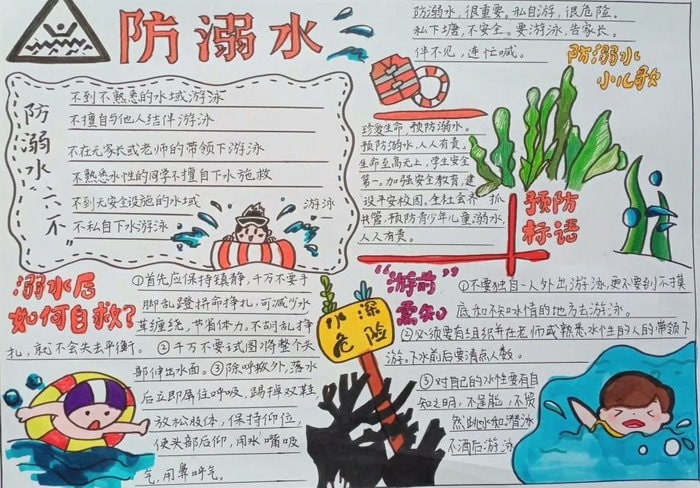 防溺水
防溺水，很重要。私自游，很危险。
私下塘，不安全。要游泳，告家长。
伴不见，连忙喊。
防溺水
小儿歌
防溺水"六不"
不到不熟悉的水域游泳
不擅自与他人结伴游泳
不在无家长或老师的带领下游泳
不熟悉水性的同学不擅自下水施救
不到无安全设施的水域游泳
不私自下水游泳
珍爱生命，预防溺水。
预防溺水，人人有责。
生命至高无上，学生安全
第一。加强安全教育，建
设平安校园，全社会齐抓
共管，预防青少年儿童溺水，
人人有责。
预防
标语
溺水后
如何自救？
①首先应保持镇静，千万不要手
脚乱蹬拼命挣扎，可减少水
草缠绕，节省体力。不胡乱挣
扎，就不会失去平衡。②千万不要试图将整个头
部伸出水面。③除呼救外，落水
后立即屏住呼吸，踢掉双鞋，
放松肢体，保持仰位，
使头部后仰，用水嘴吸
气，用鼻呼气。
水深
危险
"游前"
需知
①不要独自一人外出游泳，更不要到不摸
底和不知水情的地方去游泳。
②必须要有组织并在老师或熟悉水性的人的带领下
游。下水前后要清点人数。
③对自己的水性要有自
知之明，不逞能，不贸
然跳水和潜泳
不酒后游泳